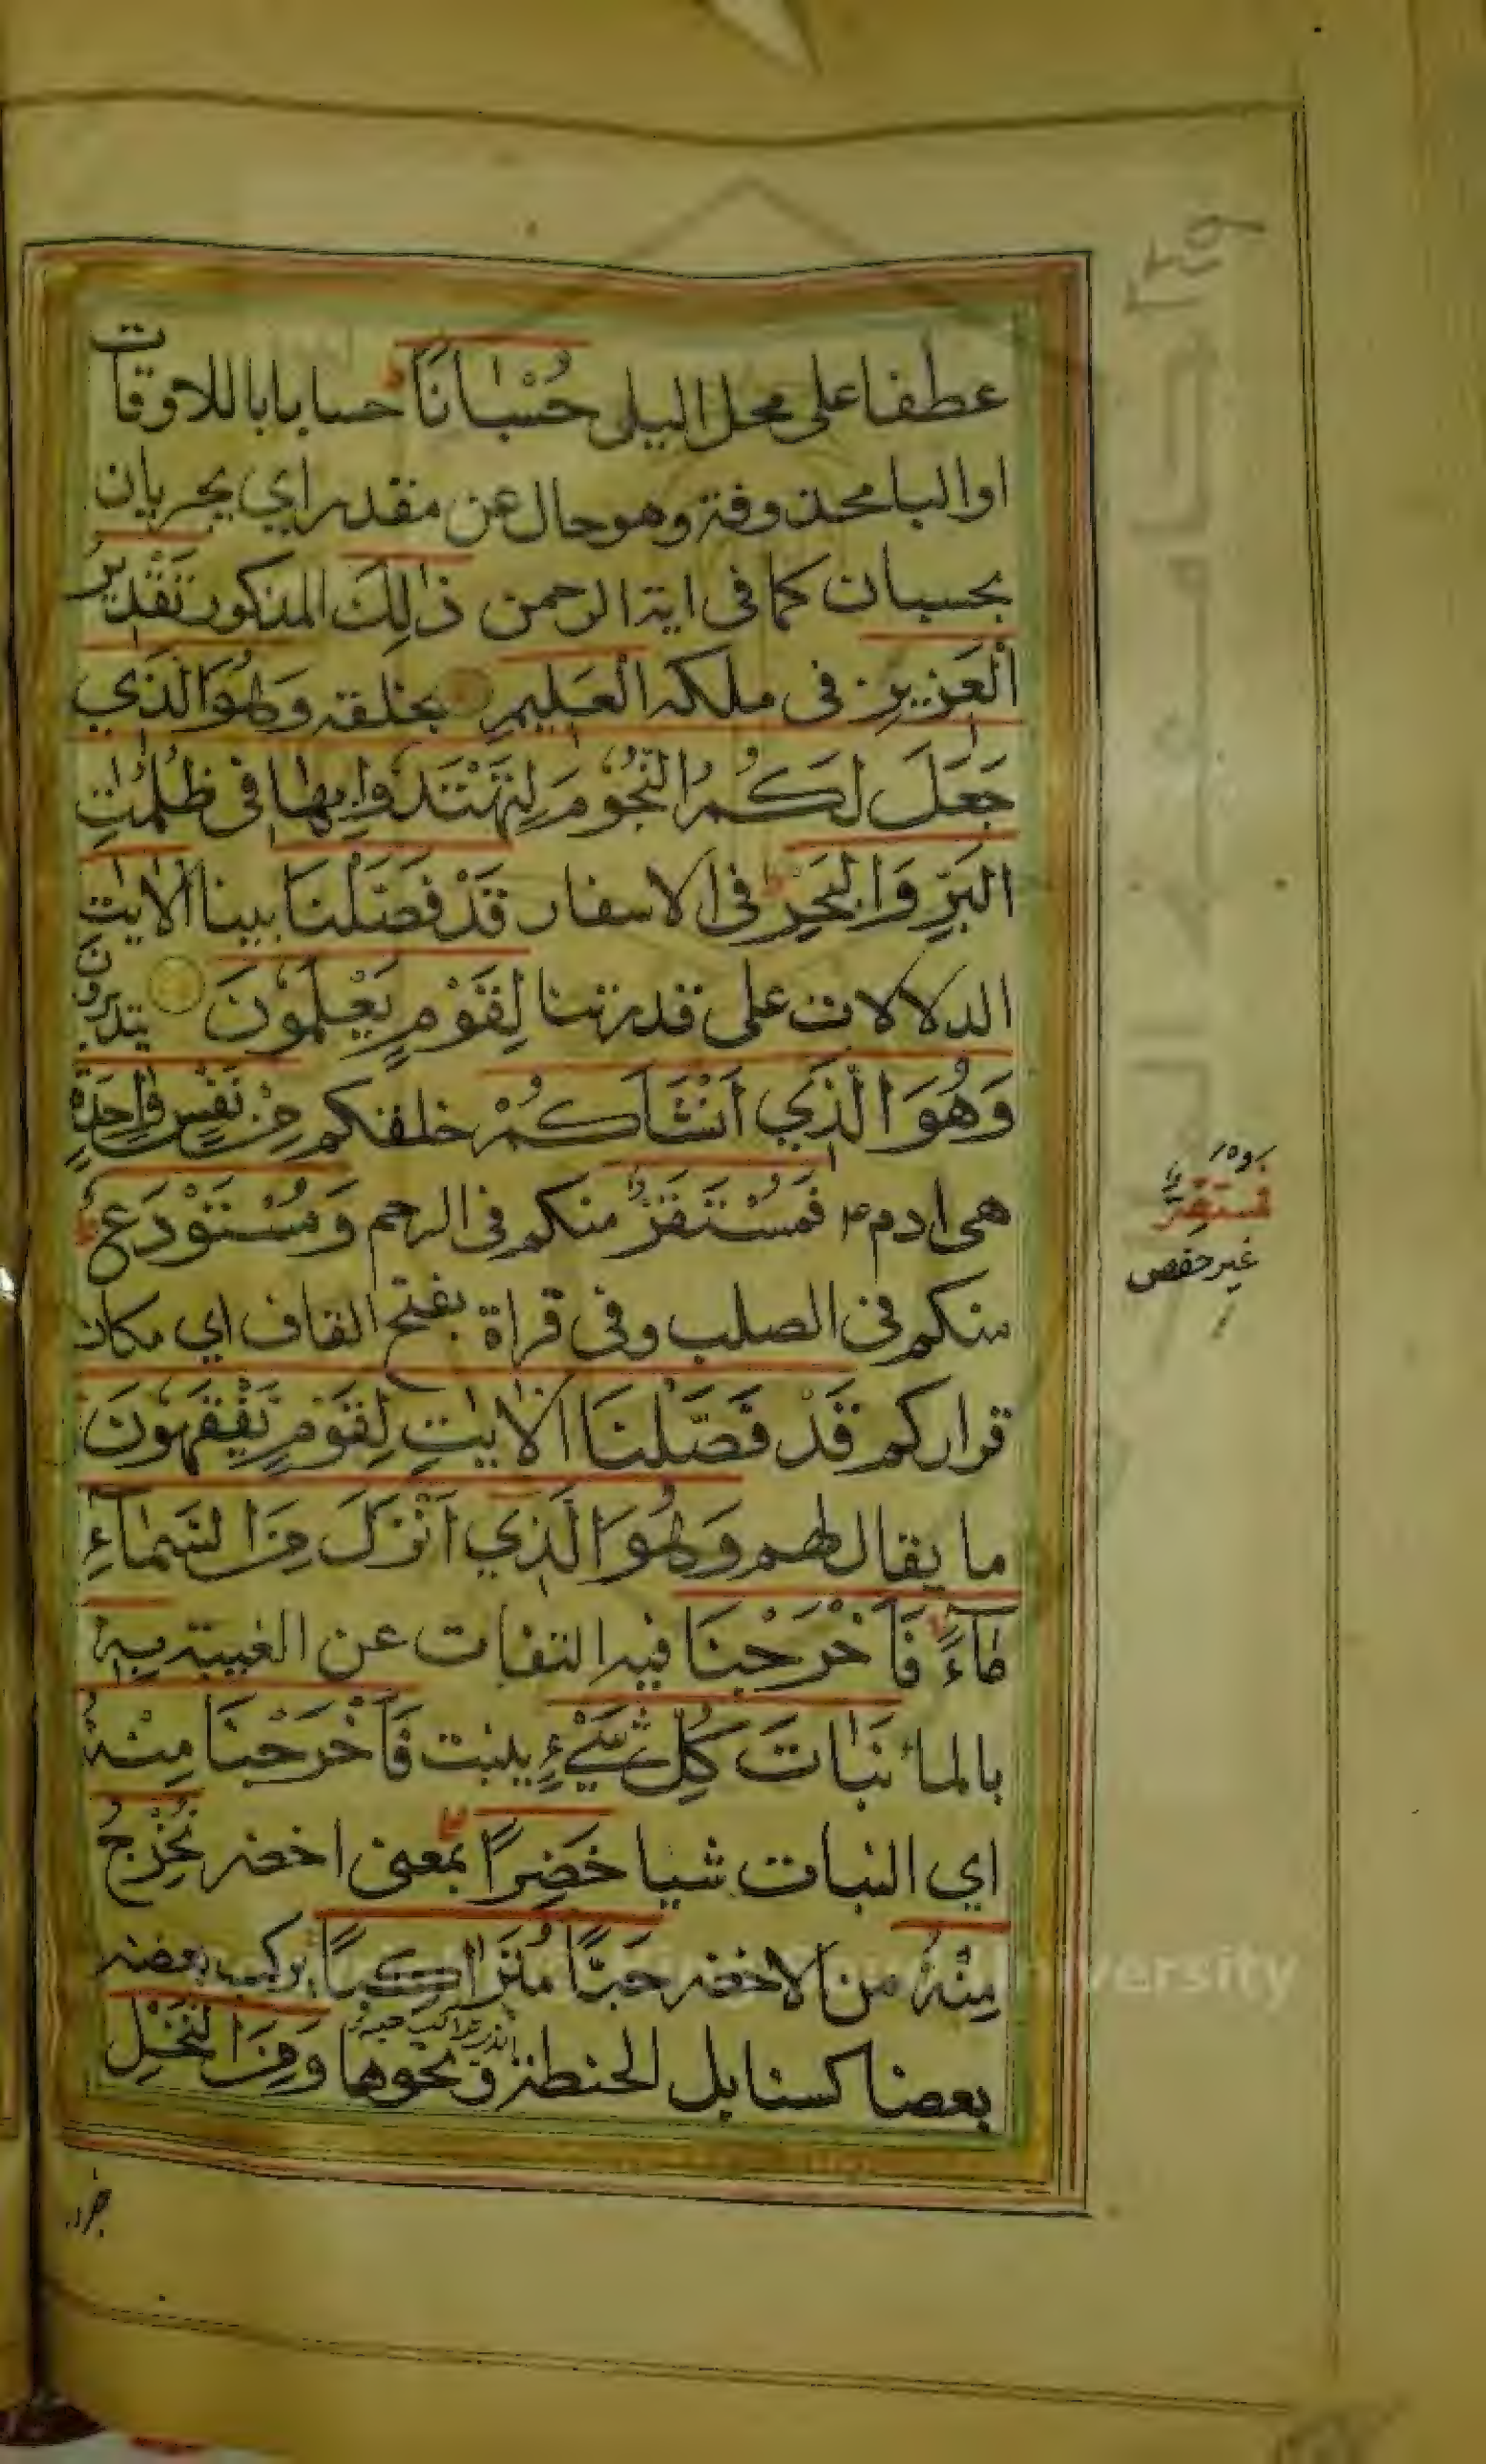 عطفا على محل اليلى حُسْبَانًا حسابا باللاوقات
اوالبا محذوفة وهو حال عن مقدر اي يجريان
بحسبان كما فى اية الرحمن ذٰلِكَ المذكور تَقْدِيرُ
الْعَزِيزِ فى ملكه الْعَلِيمِ بخلقه وَهُوَ الَّذِي
جَعَلَ لَكُمُ النُّجُومَ لِتَهْتَدُوا بِهَا فِي ظُلُمٰتِ
الْبَرِّ وَالْبَحْرِ فى الاسفار قَدْ فَصَّلْنَا بينا الْاٰيٰتِ
الدلالات على قدرتنا لِقَوْمٍ يَعْلَمُونَ يتدبرون
وَهُوَ الَّذِي اَنْشَاَكُمْ خلقكم مِنْ نَفْسٍ وَاحِدَةٍ
هى ادم فَمُسْتَقَرٌّ منكم فى الرحم وَمُسْتَوْدَعٌ
منكم فى الصلب وفى قراة بفتح القاف اي مكان
قراركم قَدْ فَصَّلْنَا الْاٰيٰتِ لِقَوْمٍ يَفْقَهُونَ
ما يقال لهم وَهُوَ الَّذِي اَنْزَلَ مِنَ السَّمَاءِ
مَاءً فَاَخْرَجْنَا فيه التفات عن الغيبة بِهِ
بالماء نَبَاتَ كُلِّ شَيْءٍ ينبت فَاَخْرَجْنَا مِنْهُ
اي النبات شيا خَضِرًا بمعنى اخضر نُخْرِجُ
مِنْهُ من الاخضر حَبًّا مُتَرَاكِبًا يركب بعضه
بعضا كسنابل الحنطة ونحوها وَمِنَ النَّخْلِ
فمستقر
غير حفص
versity